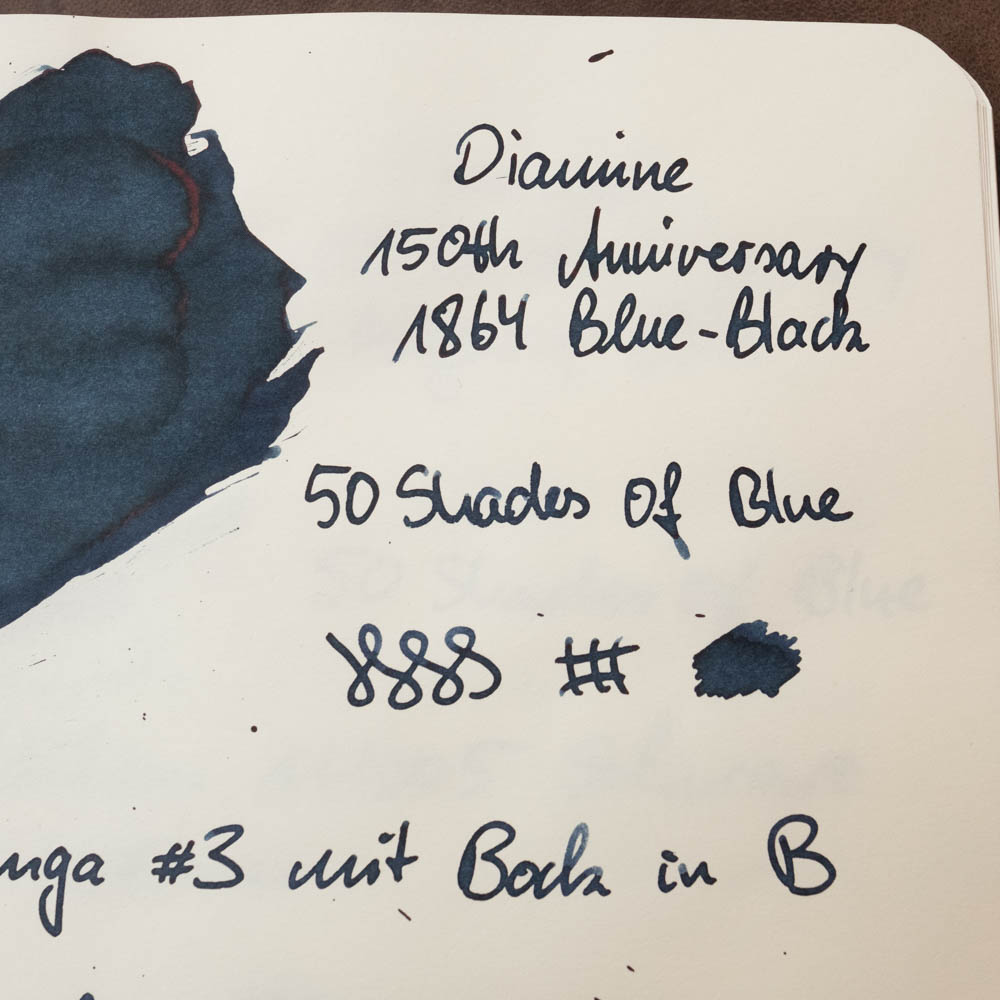 Diamine
150th Anniversary
1864 Blue-Black
50 Shades Of Blue
#
#3 mit Bock in B